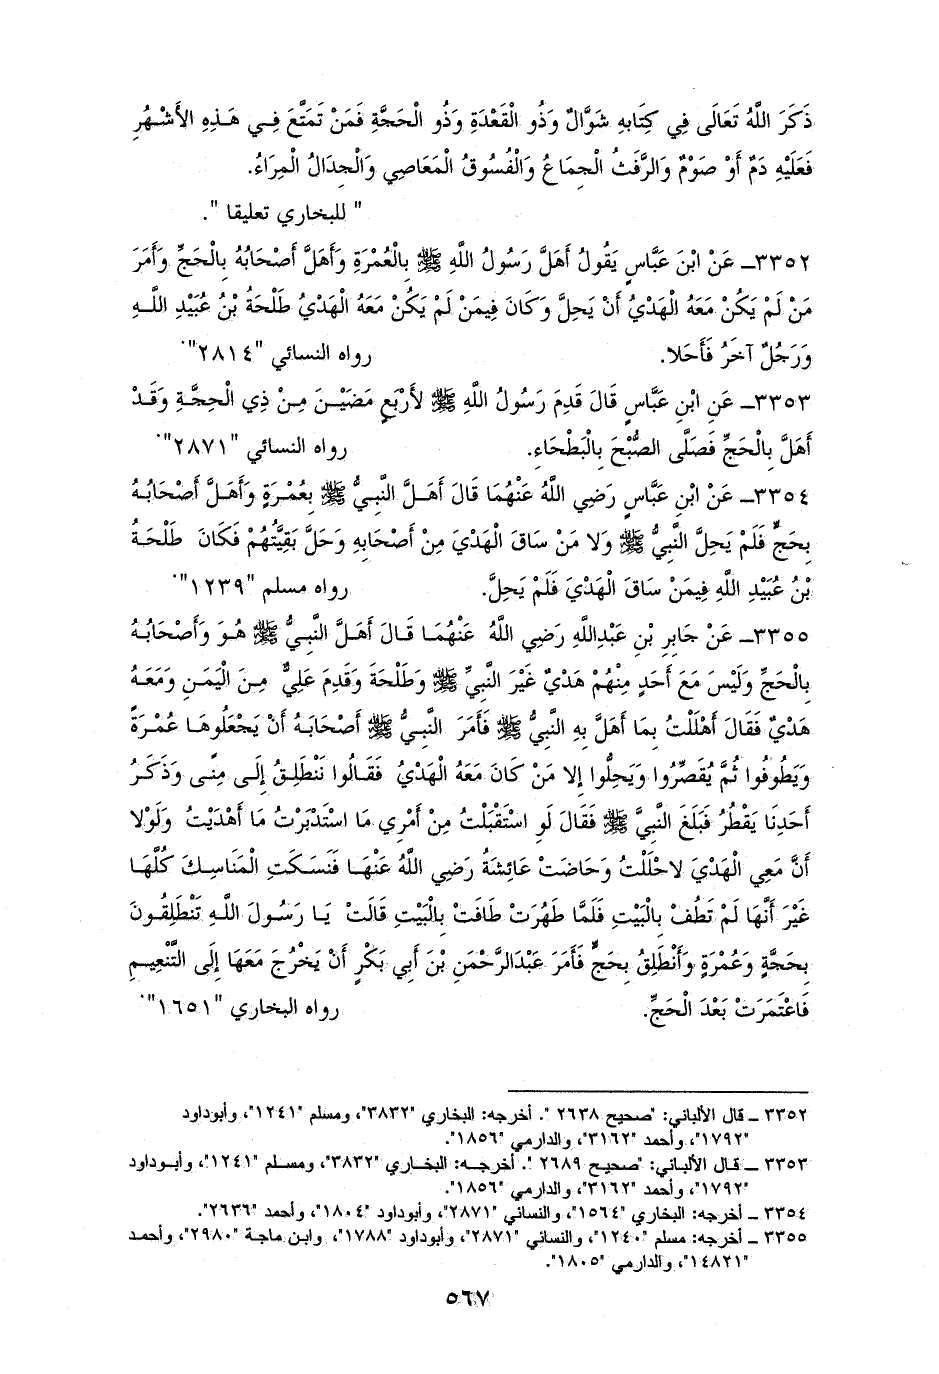 ذَكَرَ اللَّهُ تَعَالَى فِي كِتَابِهِ شَوَّالٌ وَذُو الْقَعْدَةِ وَذُو الْحَجَّةِ فَمَنْ تَمَتَّعَ فِي هَذِهِ الأَشْهُرِ
فَعَلَيْهِ دَمٌ أَوْ صَوْمٌ وَالرَّفَثُ الْجِمَاعُ وَالْفُسُوقُ الْمَعَاصِي وَالْجِدَالُ الْمِرَاءُ.
" للبخاري تعليقا ".
٣٣٥٢ـ عَنْ ابْنَ عَبَّاسٍ يَقُولُ أَهَلَّ رَسُولُ اللَّهِ ﷺ بِالْعُمْرَةِ وَأَهَلَّ أَصْحَابُهُ بِالْحَجِّ وَأَمَرَ
مَنْ لَمْ يَكُنْ مَعَهُ الْهَدْيُ أَنْ يَحِلَّ وَكَانَ فِيمَنْ لَمْ يَكُنْ مَعَهُ الْهَدْيُ طَلْحَةُ بْنُ عُبَيْدِ اللَّهِ
وَرَجُلٌ آخَرُ فَأَحَلا. رواه النسائي "٢٨١٤".
٣٣٥٣ـ عَنِ ابْنِ عَبَّاسٍ قَالَ قَدِمَ رَسُولُ اللَّهِ ﷺ لأَرْبَعٍ مَضَيْنَ مِنْ ذِي الْحِجَّةِ وَقَدْ
أَهَلَّ بِالْحَجِّ فَصَلَّى الصُّبْحَ بِالْبَطْحَاءِ. رواه النسائي "٢٨٧١".
٣٣٥٤ـ عَنْ ابْنِ عَبَّاسٍ رَضِي اللَّهُ عَنْهُمَا قَالَ أَهَلَّ النَّبِيُّ ﷺ بِعُمْرَةٍ وَأَهَلَّ أَصْحَابُهُ
بِحَجٍّ فَلَمْ يَحِلَّ النَّبِيُّ ﷺ وَلا مَنْ سَاقَ الْهَدْيَ مِنْ أَصْحَابِهِ وَحَلَّ بَقِيَّتُهُمْ فَكَانَ طَلْحَةُ
بْنُ عُبَيْدِ اللَّهِ فِيمَنْ سَاقَ الْهَدْيَ فَلَمْ يَحِلَّ. رواه مسلم "١٢٣٩".
٣٣٥٥ـ عَنْ جَابِرِ بْنِ عَبْدِاللَّهِ رَضِي اللَّهُ عَنْهُمَا قَالَ أَهَلَّ النَّبِيُّ ﷺ هُوَ وَأَصْحَابُهُ
بِالْحَجِّ وَلَيْسَ مَعَ أَحَدٍ مِنْهُمْ هَدْيٌ غَيْرَ النَّبِيِّ ﷺ وَطَلْحَةَ وَقَدِمَ عَلِيٌّ مِنَ الْيَمَنِ وَمَعَهُ
هَدْيٌ فَقَالَ أَهْلَلْتُ بِمَا أَهَلَّ بِهِ النَّبِيُّ ﷺ فَأَمَرَ النَّبِيُّ ﷺ أَصْحَابَهُ أَنْ يَجْعَلُوهَا عُمْرَةً
وَيَطُوفُوا ثُمَّ يُقَصِّرُوا وَيَحِلُّوا إِلا مَنْ كَانَ مَعَهُ الْهَدْيُ فَقَالُوا نَنْطَلِقُ إِلَى مِنًى وَذَكَرُ
أَحَدِنَا يَقْطُرُ فَبَلَغَ النَّبِيَّ ﷺ فَقَالَ لَو اسْتَقْبَلْتُ مِنْ أَمْرِي مَا اسْتَدْبَرْتُ مَا أَهْدَيْتُ وَلَوْلا
أَنَّ مَعِي الْهَدْيَ لاحْلَلْتُ وَحَاضَتْ عَائِشَةُ رَضِي اللَّهُ عَنْهَا فَنَسَكَتِ الْمَنَاسِكَ كُلَّهَا
غَيْرَ أَنَّهَا لَمْ تَطُفْ بِالْبَيْتِ فَلَمَّا طَهُرَتْ طَافَتْ بِالْبَيْتِ قَالَتْ يَا رَسُولَ اللَّهِ تَنْطَلِقُونَ
بِحَجَّةٍ وَعُمْرَةٍ وَأَنْطَلِقُ بِحَجٍّ فَأَمَرَ عَبْدَالرَّحْمَنِ بْنَ أَبِي بَكْرٍ أَنْ يَخْرُجَ مَعَهَا إِلَى التَّنْعِيمِ
فَاعْتَمَرَتْ بَعْدَ الْحَجِّ. رواه البخاري "١٦٥١".
٣٣٥٢ ـ قال الألباني: "صحيح ٢٦٣٨ ". أخرجه: البخاري "٣٨٣٢"، ومسلم "١٢٤١"، وأبوداود
"١٧٩٢"، وأحمد "٣١٦٢"، والدارمي "١٨٥٦".
٣٣٥٣ ـ قال الألباني: "صحيح ٢٦٨٩ ". أخرجه: البخاري "٣٨٣٢"، ومسلم "١٢٤١"، وأبوداود
"١٧٩٢"، وأحمد "٣١٦٢"، والدارمي "١٨٥٦".
٣٣٥٤ ـ أخرجه: البخاري "١٥٦٤"، والنسائي "٢٨٧١"، وأبوداود "١٨٠٤"، وأحمد "٢٦٣٦".
٣٣٥٥ ـ أخرجه: مسلم "١٢٤٠"، والنسائي "٢٨٧١"، وأبوداود "١٧٨٨"، وابن ماجة "٢٩٨٠"، وأحمد
"١٤٨٢١"، والدارمي "١٨٠٥".
٥٦٧